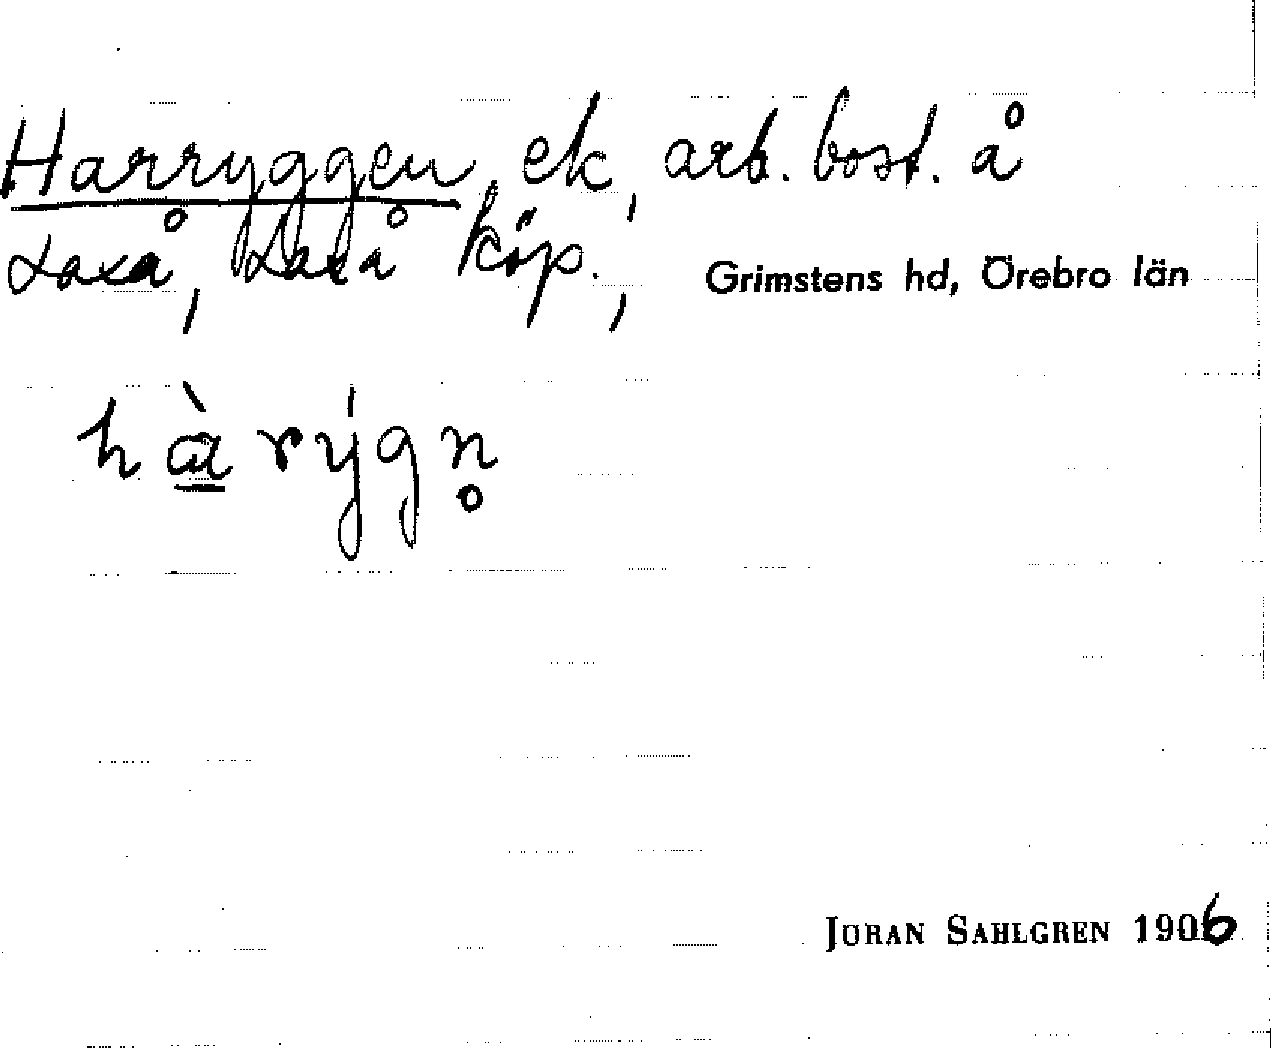 Harryggen, ek, arb. bost. å
Laxå, Laxå köp., Grimstens hd, Örebro län
hàrýgn̥
JÖRAN SAHLGREN 1906